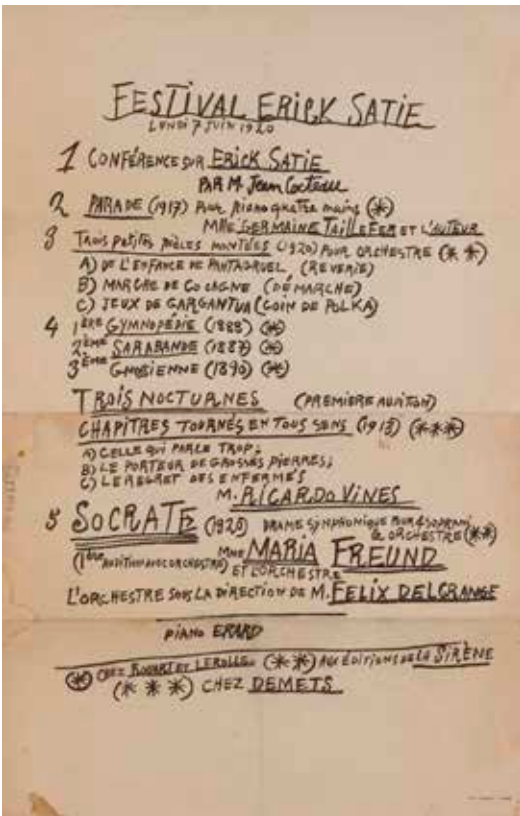 FESTIVAL ERICK SATIE
LUNDI 7 JUIN 1920
1 CONFÉRENCE SUR ERICK SATIE
PAR M. Jean Cocteau
2 PARADE (1917) Pour piano quatre mains (*)
MME GERMAINE TAILLEFER ET L'AUTEUR
3 TROIS PETITES PIÈCES MONTÉES (1920) POUR ORCHESTRE (* *)
A) DE L'ENFANCE DE PANTAGRUEL (REVERIE)
B) MARCHE DE COCAGNE (DÉMARCHE)
C) JEUX DE GARGANTUA (COIN DE POLKA)
4 1ÈRE GYMNOPÉDIE (1888) (*)
2ÈME SARABANDE (1887) (*)
3ÈME GNOSIENNE (1890) (*)
TROIS NOCTURNES (PREMIERE AUDITION)
CHAPITRES TOURNÉS EN TOUS SENS (1913) (* * *)
A) CELLE QUI PARLE TROP;
B) LE PORTEUR DE GROSSES PIERRES;
C) LE REGRET DES ENFERMÉS
M. RICARDO VINES
5 SOCRATE (1920) DRAME SYMPHONIQUE POUR 4 SOPRANI
& ORCHESTRE (* *)
(1ÈRE AUDITION AVEC ORCHESTRE) MME MARIA FREUND
ET L'ORCHESTRE
L'ORCHESTRE SOUS LA DIRECTION DE M. FELIX DELGRANGE
PIANO ERARD
(*) CHEZ ROUART ET LEROLLE. (* *) AUX ÉDITIONS DE LA SIRÈNE
(* * *) CHEZ DEMETS